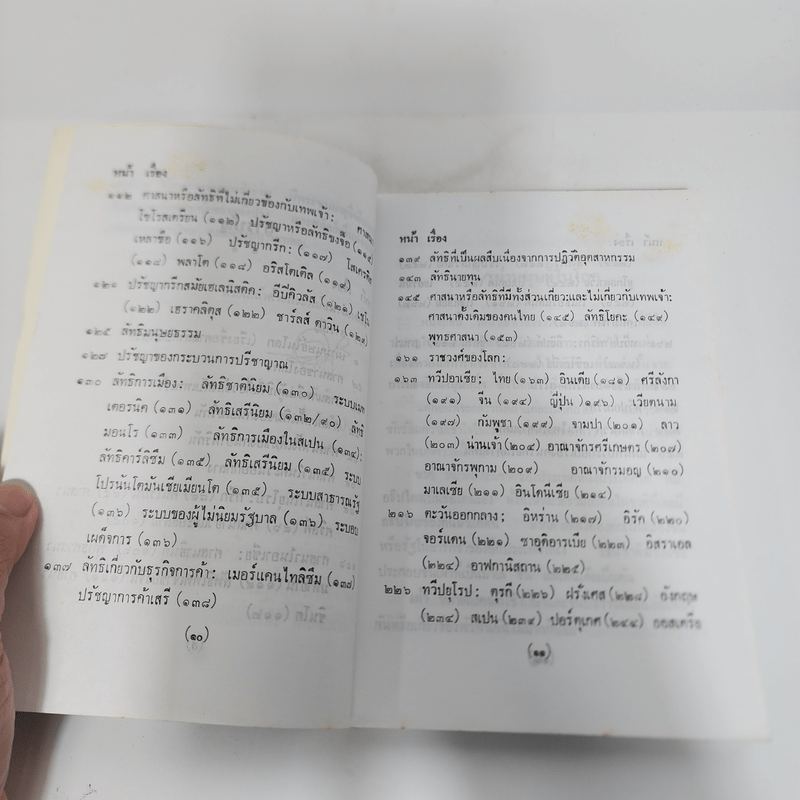 หน้า เรื่อง
๑๑๒ ศาสนาหรือลัทธิที่ไม่เกี่ยวข้องกับเทพเจ้า: ศาสนา
โซโรสเตรียน (๑๑๒) ปรัชญาหรือลัทธิขงจื๊อ (๑๑๕)
เหลาซือ (๑๑๖) ปรัชญากรีก: (๑๑๗) โสเครติส
(๑๑๘) พลาโต (๑๑๘) อริสโตเติล (๑๑๙)
๑๒๑ ปรัชญากรีกสมัยเฮเลนิสติค: อีบีคิวลัส (๑๒๑) เซโน
(๑๒๒) เฮราคลิตุส (๑๒๒) ชาร์ลส์ ดาวิน (๑๒๑)
๑๒๕ ลัทธิมนุษยธรรม
๑๒๗ ปรัชญาของกระบวนการปรีชาญาณ
๑๓๐ ลัทธิการเมือง: ลัทธิชาตินิยม (๑๓๐) ระบบเมท
เตอรนิค (๑๓๑) ลัทธิเสรีนิยม (๑๓๒/๙๐) ลัทธิ
มอนโร (๑๓๓) ลัทธิการเมืองในสเปน (๑๓๔):
ลัทธิคาร์ลิซึม (๑๓๕) ลัทธิเสรีนิยม (๑๓๕) ระบบ
โปรนันโตมันเซียเมียนโต (๑๓๕) ระบบสาธารณรัฐ
(๑๓๖) ระบบของผู้ไม่นิยมรัฐบาล (๑๓๖) ระบอบ
เผด็จการ (๑๓๖)
๑๓๗ ลัทธิเกี่ยวกับธุรกิจการค้า: เมอร์แคนไทลิซึม (๑๓๗)
ปรัชญาการค้าเสรี (๑๓๘)
(๑๐)
หน้า เรื่อง
๑๓๙ ลัทธิที่เป็นผลสืบเนื่องจากการปฏิวัติอุตสาหกรรม
๑๔๓ ลัทธินายทุน
๑๔๕ ศาสนาหรือลัทธิที่มีทั้งส่วนเกี่ยวและไม่เกี่ยวกับเทพเจ้า:
ศาสนาดั้งเดิมของคนไทย (๑๔๕) ลัทธิโยคะ (๑๔๙)
พุทธศาสนา (๑๕๓)
๑๖๑ ราชวงศ์ของโลก:
๑๖๓ ทวีปอาเซีย; ไทย (๑๖๓) อินเดีย (๑๘๑) ศรีลังกา
(๑๙๑) จีน (๑๙๔) ญี่ปุ่น )๑๙๖) เวียดนาม
(๑๙๗) กัมพูชา (๑๙๙) จามปา (๒๐๑) ลาว
(๒๐๓) น่านเจ้า (๒๐๔) อาณาจักรศรีเกษตร (๒๐๗)
อาณาจักรพุกาม (๒๐๙) อาณาจักรมอญ (๒๑๐)
มาเลเซีย (๒๑๑) อินโดนีเซีย (๒๑๔)
๒๑๖ ตะวันออกกลาง; อิหร่าน (๒๑๗) อิรัค (๒๒๐)
จอร์แดน (๒๒๑) ซาอุดิอารเบีย (๒๒๓) อิสราเอล
(๒๒๔) อาฟกานิสถาน (๒๒๕)
๒๒๖ ทวีปยุโรป: ตุรกี (๒๒๖) ฝรั่งเศส (๒๒๘) อังกฤษ
(๒๓๔) สเปน (๒๓๙) ปอร์ตุเกศ (๒๔๔) ออสเตรีย
(๑๑)